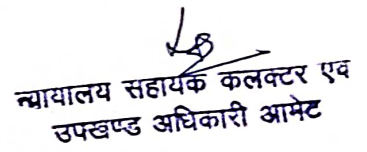 न्यायालय सहायक कलक्टर एव
उपखण्ड अधिकारी आमेट